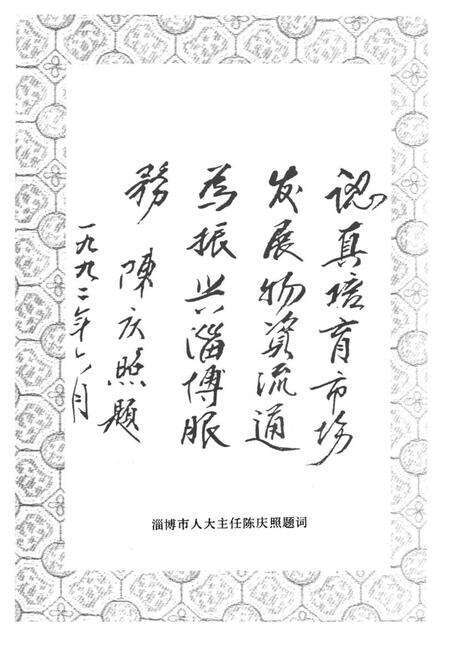 認真培育市场
发展物資流通
為振兴淄博服
務 陳庆照題
一九九二年八月
淄博市人大主任陈庆照题词